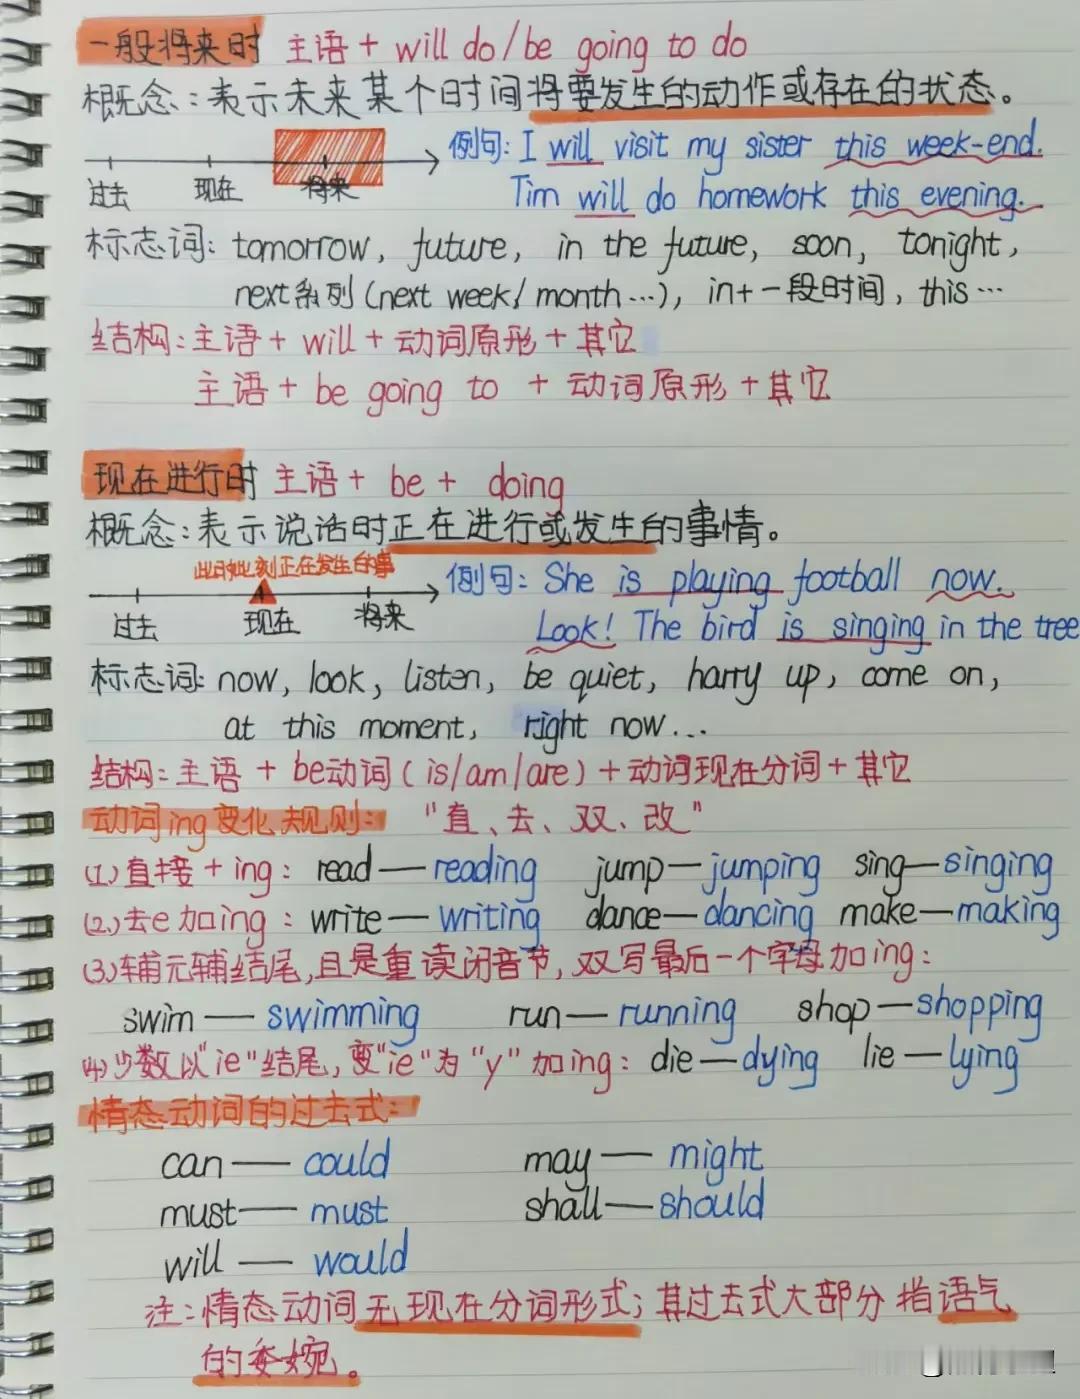 一般将来时 主语 + will do/be going to do
概念：表示未来某个时间将要发生的动作或存在的状态。
例句: I will visit my sister this week-end.
过去 现在 将来 Tim will do homework this evening.
标志词: tomorrow, future, in the future, soon, tonight,
next系列(next week/month…), in+一段时间, this…
结构:主语 + will + 动词原形 + 其它
主语 + be going to + 动词原形 + 其它
现在进行时 主语 + be + doing
概念:表示说话时正在进行或发生的事情。
此时此刻正在发生的事 例句: She is playing football now.
过去 现在 将来 Look! The bird is singing in the tree
标志词: now, look, listen, be quiet, harry up, come on,
at this moment, right now...
结构:主语 + be动词(is/am/are)+动词现在分词+其它
动词ing变化规则: "直、去、双、改"
(1.)直接 + ing: read—reading jump—jumping sing—singing
(2.)去e加ing: write—writing dance—dancing make—making
(3)辅元辅结尾,且是重读闭音节,双写最后一个字母加ing:
swim—swimming run—running shop—shopping
(4)少数以"ie"结尾,变"ie"为"y"加ing: die—dying lie—lying
情态动词的过去式:
can—could may—might
must—must shall—should
will—would
注:情态动词无现在分词形式;其过去式大部分指语气
的委婉。